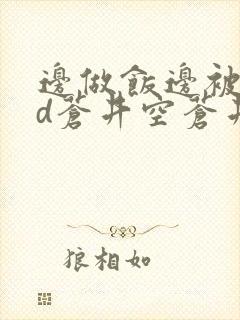 邊做飯邊被
d蒼井空蒼井
狼相如